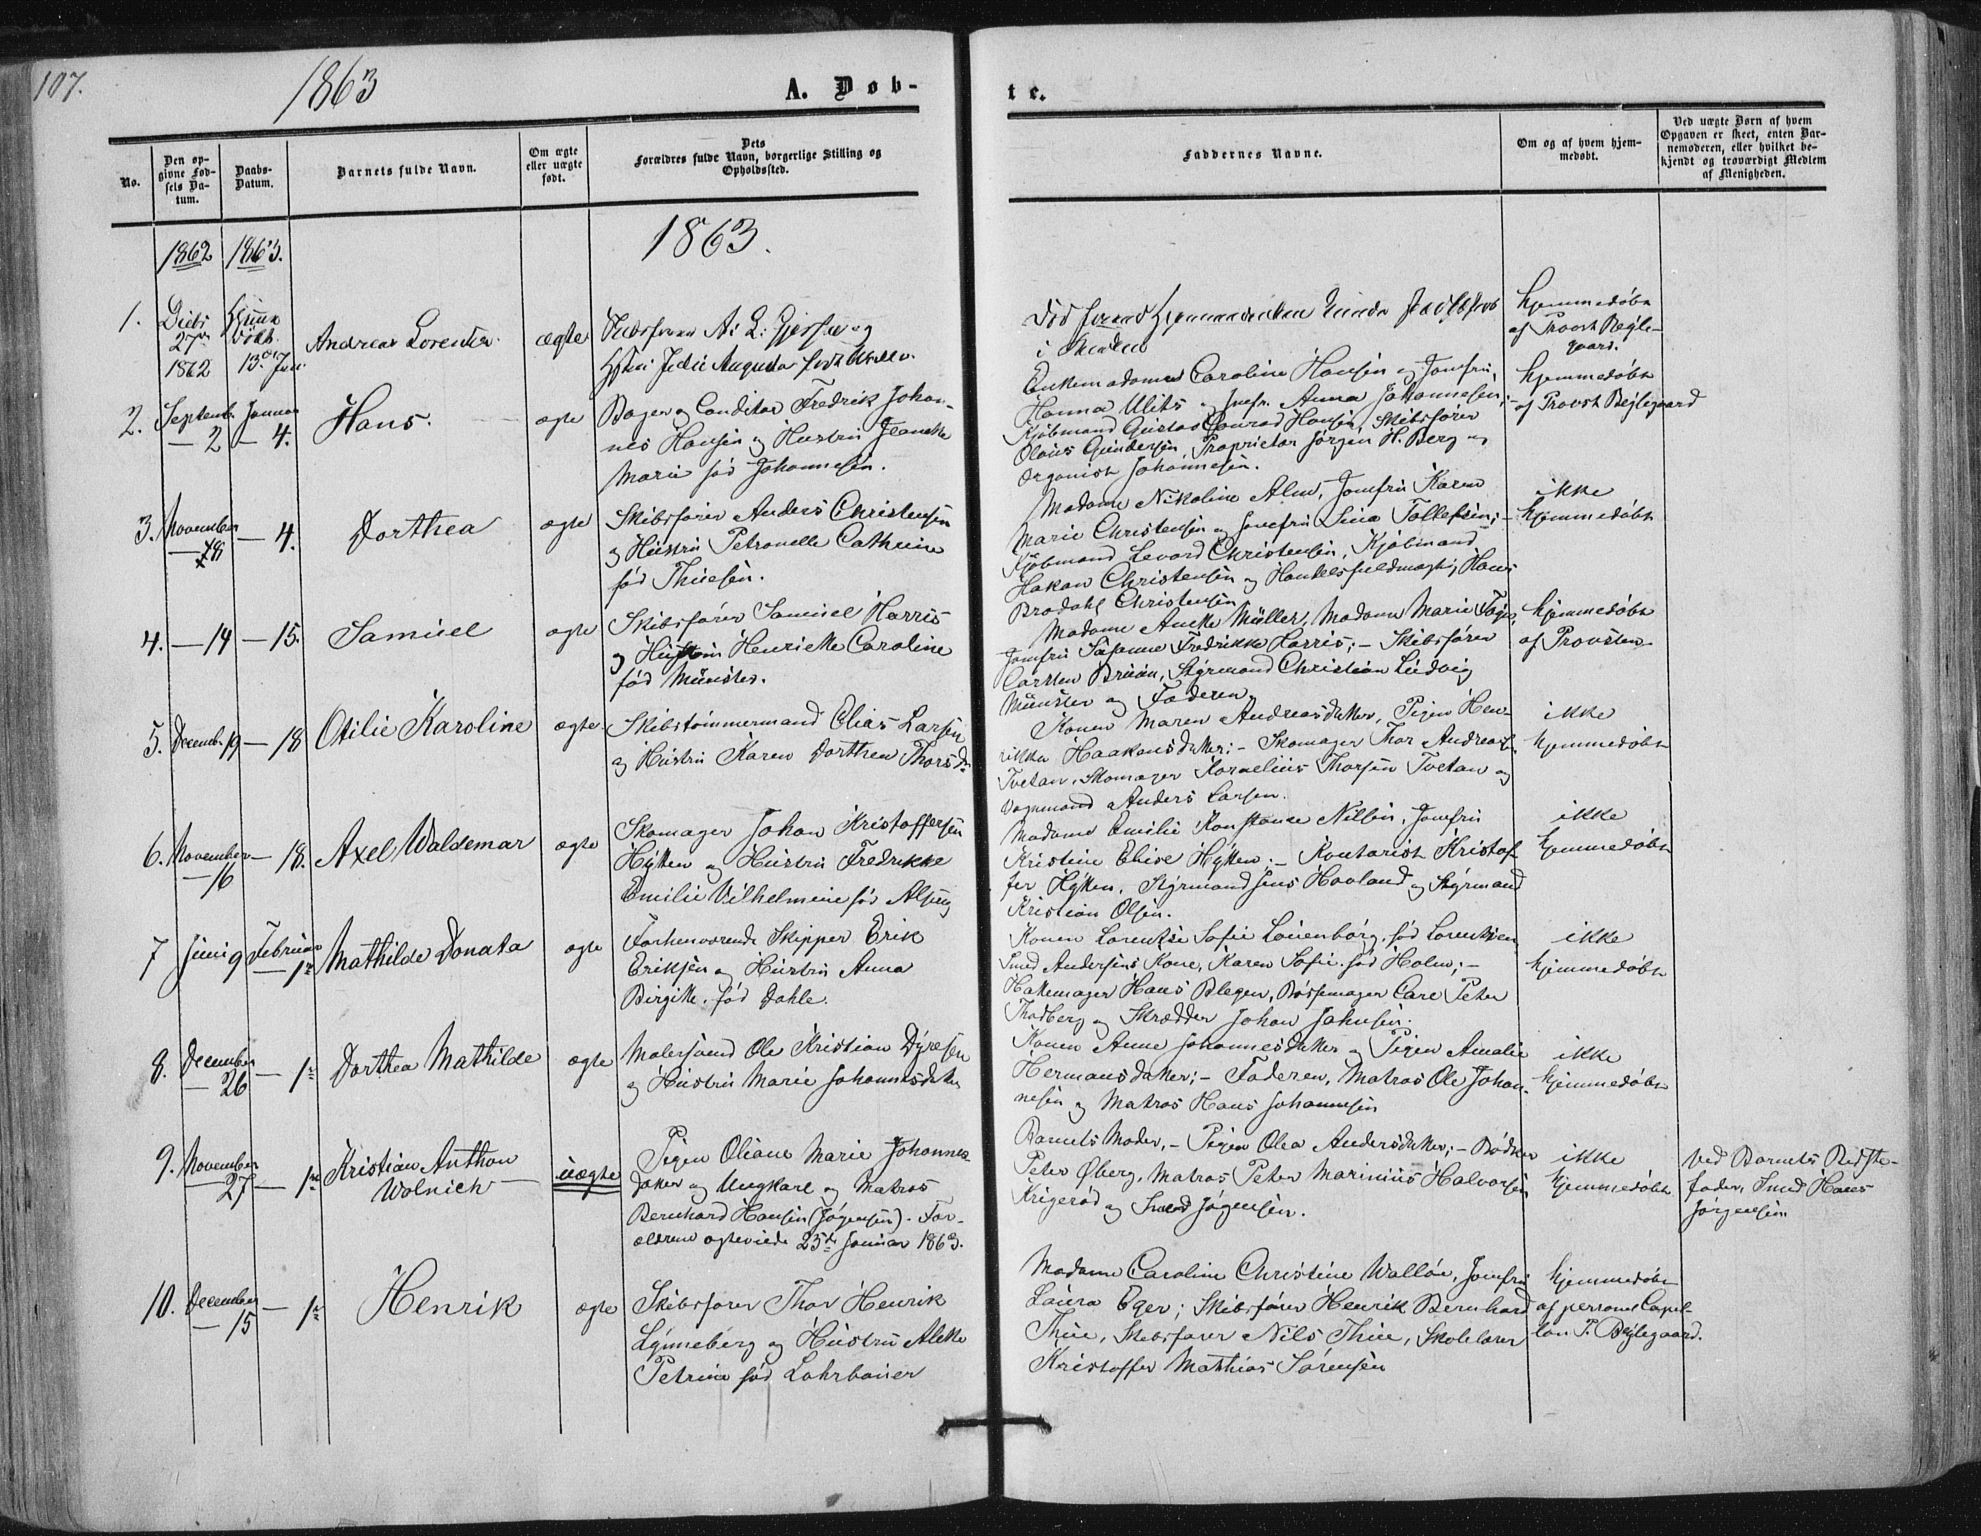 107.
1863
A. Døb-
te.
No.
Den op-
givne Fød-
sels Da-
tum.
Daabs-
Datum.
Barnets fulde Navn.
Om ægte
eller uægte
født.
Dets
Forældres fulde Navn, borgerlige Stilling og
Opholdssted.
Faddernes Navne.
Om og af hvem hjem-
medøbt.
Ved uægte Børn af hvem
Opgaven er skeet, enten Bar-
nemoderen, eller hvilket be-
kjendt og troværdigt Medlem
af Menigheden.
1862 1863.
1863.
1.
27de
1862
13de Jan.
Andreas Lorentz.
ægte
A. L.
Augusta født
hjemmedøbt
af Provst Bejle-
gaard.
2. Septemb. 2 Januar 4.
Hans.
ægte
Bager og Conditor Fredrik Johan-
nes Hansen og Hustru Jeanette
Marie fød Johannesen.
Enkemadame Caroline Hansen og Jomfru
Hanna og Jmfr. Anna Johannesen;
Kjøbmand Gustav Conrad Hansen, Skibsfører
Olaus Gundersen, Proprietær Jørgen H. Berg og
Organist Johannesen.
hjemmedøbt
af Provst Bejlegaard
3. November 18 — 4.
Dorthea
ægte
Skibsfører Anders Christensen
og Hustru Petronelle Cathrine
fød Thuesen.
Madame Nikoline Alm, Jomfru Karen
Marie Christensen og Jomfru Lina Tollefsen; —
Kjøbmand Levord Christensen, Kjøbmand
Hakon Christensen og Handelsfuldmægtig Hans
Brodahl Christensen
ikke
hjemmedøbt
4. — 14 — 15.
Samuel
ægte
Skibsfører Samuel Harris
og Hustru Henriette Caroline
fød Münster.
Madame Anette Müller, Madame Marie
Jomfru Susanne Fredrikke Harris; — Skibsfører
Carsten Bruun, Styrmand Christian Ludvig
Münster og Faderen
hjemmedøbt
af Provsten
5. Decemb. 19 — 18
Otilie Karoline
ægte
Skibstømmermand Elias Larsen
og Hustru Karen Dorthea Thorsd.
Konen Maren Andreasdatter, Pigen Hen-
rikke Haakensdatter; — Skomager Thor Andreas.
Tvetan, Skomager Kornelius Thorsen Tvetan og
Vognmand Anders Larsen.
ikke
hjemmedøbt
6. November 16 — 18.
Axel Waldemar
ægte
Skomager Johan Kristoffersen
Hytten og Hustru Fredrikke
Emilie Vilhelmine fød
Madame Emilie Konstance Nilsen, Jomfru
Kristine Elise Hytten; — Kontorist Kristof-
fer Hytten, Styrmand Jens Hovland og Styrmand
Kristian Olsen.
ikke
hjemmedøbt
7 Juni 9 Februar 1ste
Mathilde Donata
ægte
Forhenværende Skipper Erik
Eriksen og Hustru Anna
Birgitte, fød Dahle.
Konen Lorentze Sofie Lauenborg, fød Lorentzen
Smed Andersens Kone, Karen Sofie fød Holm; —
Hattemager Hans Blegen, Bøssemager Carl Peter
Thodberg og Skrædder Johan Johnsen.
ikke
hjemmedøbt
8. December 26 — 1ste
Dorthea Mathilde
ægte
Malersvend Ole Kristian Dyresen
og Hustru Marie Johannesdatter
Konen Anne Johannesdatter og Pigen Amalie
Hermansdatter; — Faderen, Matros Ole Johan-
nesen og Matros Hans Johannesen
ikke
hjemmedøbt
9. November 27 — 1ste
Kristian Anthon
Wolnich
uægte
Pigen Oliane Marie Johannes-
datter og Ungkarl og Matros
Bernhard Hansen (Jørgensen). For-
ældrene ægteviede 25de Januar 1863.
Barnets Moder, — Pigen Olea Andersdatter; — Bødker
Peter Øberg, Matros Peter Marinius Halvorsen
Krigerød og Svend Jørgensen.
ikke
hjemmedøbt
ved Barnets Bedste-
fader, Smed Hans
Jørgensen
10. December 15 — 1ste
Henrik
ægte
Skibsfører Thor Henrik
Lynneberg og Hustru Alette
Petrine fød Lohrbauer
Madame Caroline Christine Walløe, Jomfru
Laura Eger; Skibsfører Henrik Bernhard
Thue, Skibsfører Nils Thue, Skolelærer
Kristoffer Mathias Sørensen
hjemmedøbt
af personel Capel-
lan P. Bejlegaard.